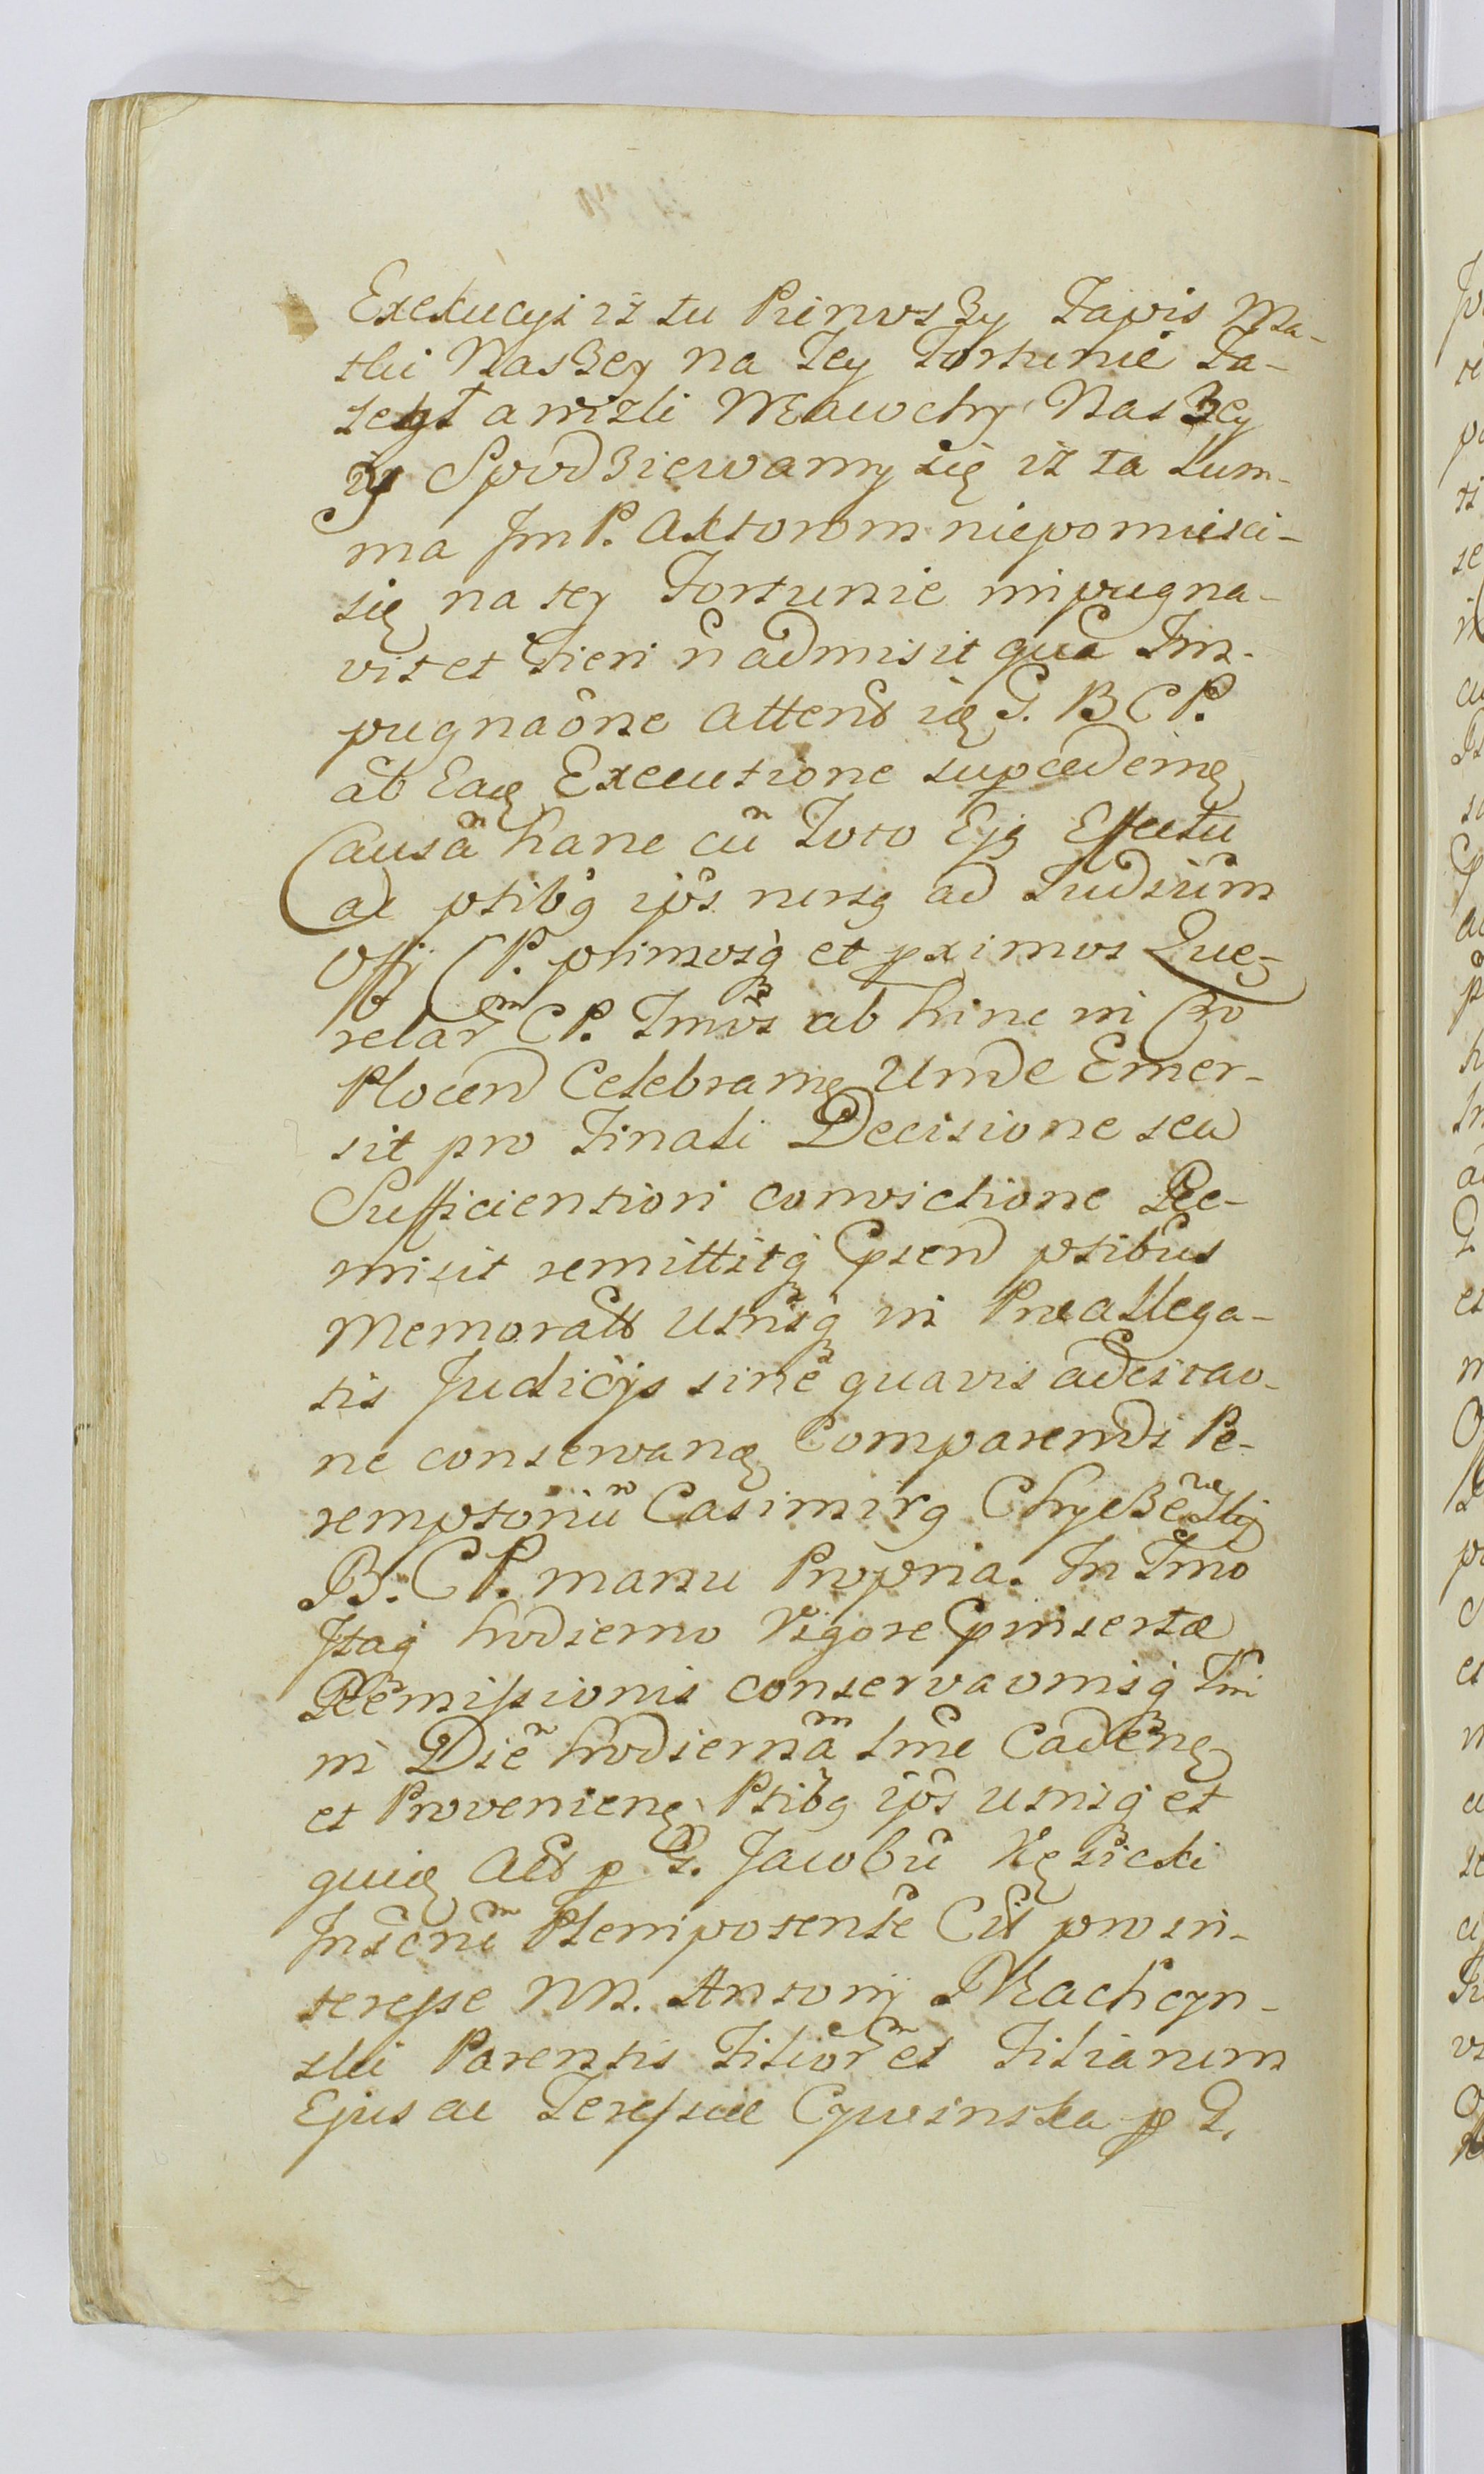 Exekucyi iż tu Pierwszy Zapis Ma-
tki Naszey na Tey Fortunie Za-
szedł a niżli Macochy Naszey
iy Spodziewamy się iż ta Sum-
ma Jm P. Aktorom niepomiesci-
się na tey Fortunie impugna-
vit et Fieri ñ admisit qua Im-
pugnaône attenð G. B C P.
ab Eaq Executione supcedemę
Causã hanc cũ Toto Ejq Effectu
ac ptibq ipŝ rursq ad Iudicium
Offi C P. primosq et pximos Que-
relar C P. Tmôs ab hinc in Cro
Plocen Celebramę Unde Emer-
sit pro Finali Decisione seu
Sufficientiori convictione Re-
misit remittitq Cpsen ptibus
Memorats Utrisq in Praeallega-
tis Judicijs sine quavis adcitao-
ne conservanę Comparendi Pe-
remptoriũ Casimirq Chyczewski
B. C P. manu Propria. In Tmo
Itaq hodierno Vigore Cpinsertæ
Remissionis conservaonisq Tmi
in Diẽ hodiernã Tme Cadenę
et Provenienę Ptibq ipŝ utrisq et
quię Act p G. Jacobũ Kęsicki
Plenipotente Cit pro in-
teresse NN. Antonij Machcyn-
ski Parentis Filiôr et Filiarum
Ejus ac Teressiae Cywinska p G.